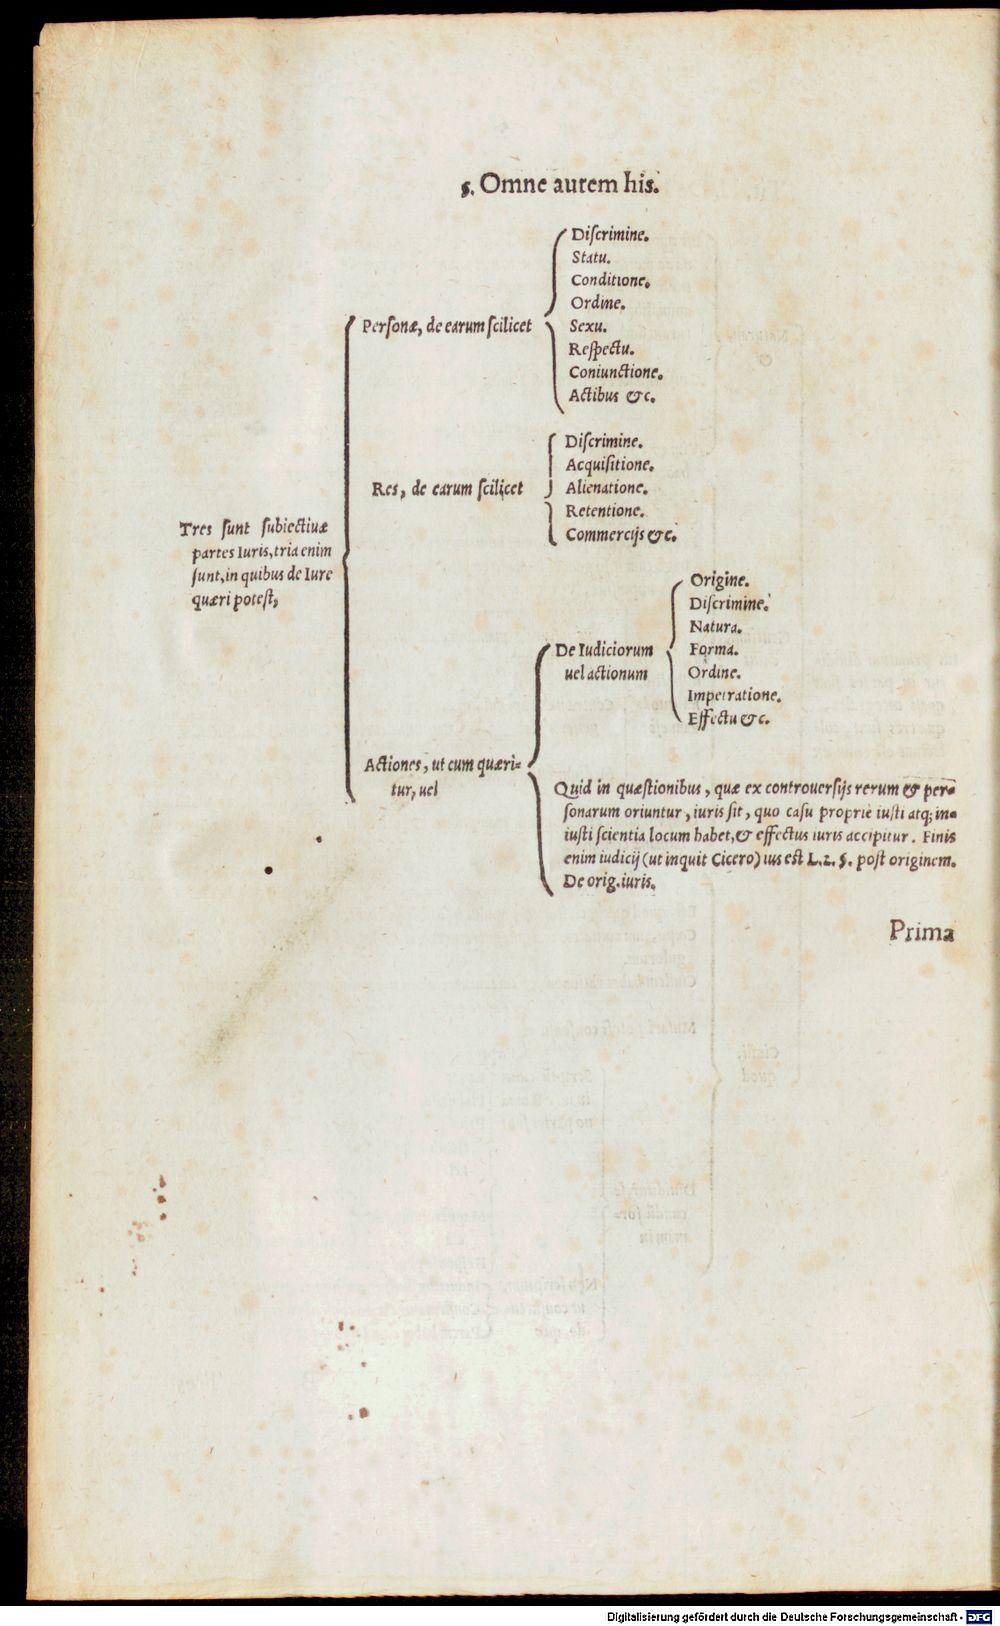 §. Omne autem his.
Tres sunt subiectiuæ
partes Iuris, tria enim
sunt, in quibus de Iure
quæri potest,
Personæ, de earum scilicet
Discrimine.
Statu.
Conditione.
Ordine.
Sexu.
Respectu.
Coniunctione.
Actibus &c.
Res, de earum scilicet
Discrimine.
Acquisitione.
Alienatione.
Retentione.
Commercijs &c.
Actiones, ut cum quæri-
tur, uel
De Iudiciorum
uel actionum
Origine.
Discrimine.
Natura.
Forma.
Ordine.
Impetratione.
Effectu &c.
Quid in quæstionibus, quæ ex controuersijs rerum & per-
sonarum oriuntur, iuris sit, quo casu propriè iusti atq; in-
iusti scientia locum habet, & effectus iuris accipitur. Finis
enim iudicij (ut inquit Cicero) ius est L. 2. §. post originem.
De orig. iuris.
Prima
Digitalisierung gefördert durch die Deutsche Forschungsgemeinschaft - DFG